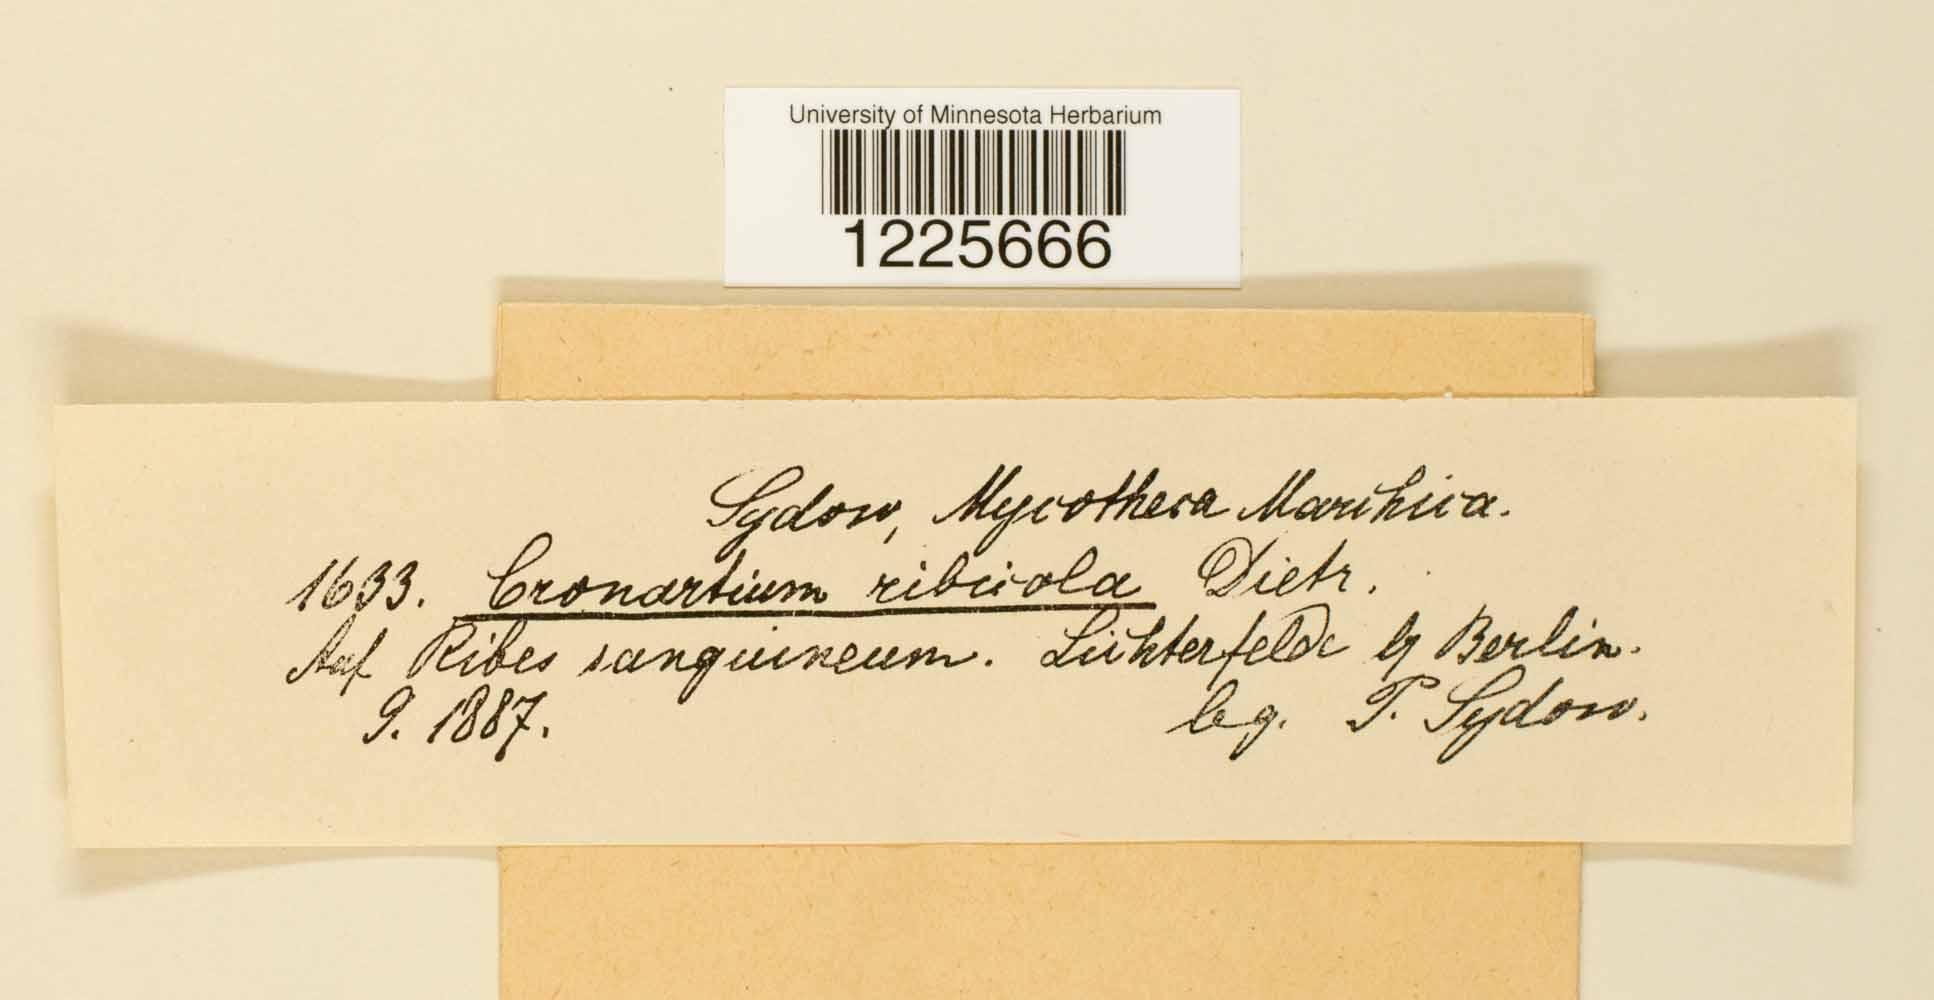 University of Minnesota Herbarium
1225666
Sydow, Mycotheca Marchica.
1633. Cronartium ribicola Dietr.
Auf Ribes sanguineum. Lichterfelde bg Berlin.
9. 1887.
leg. P. Sydow.